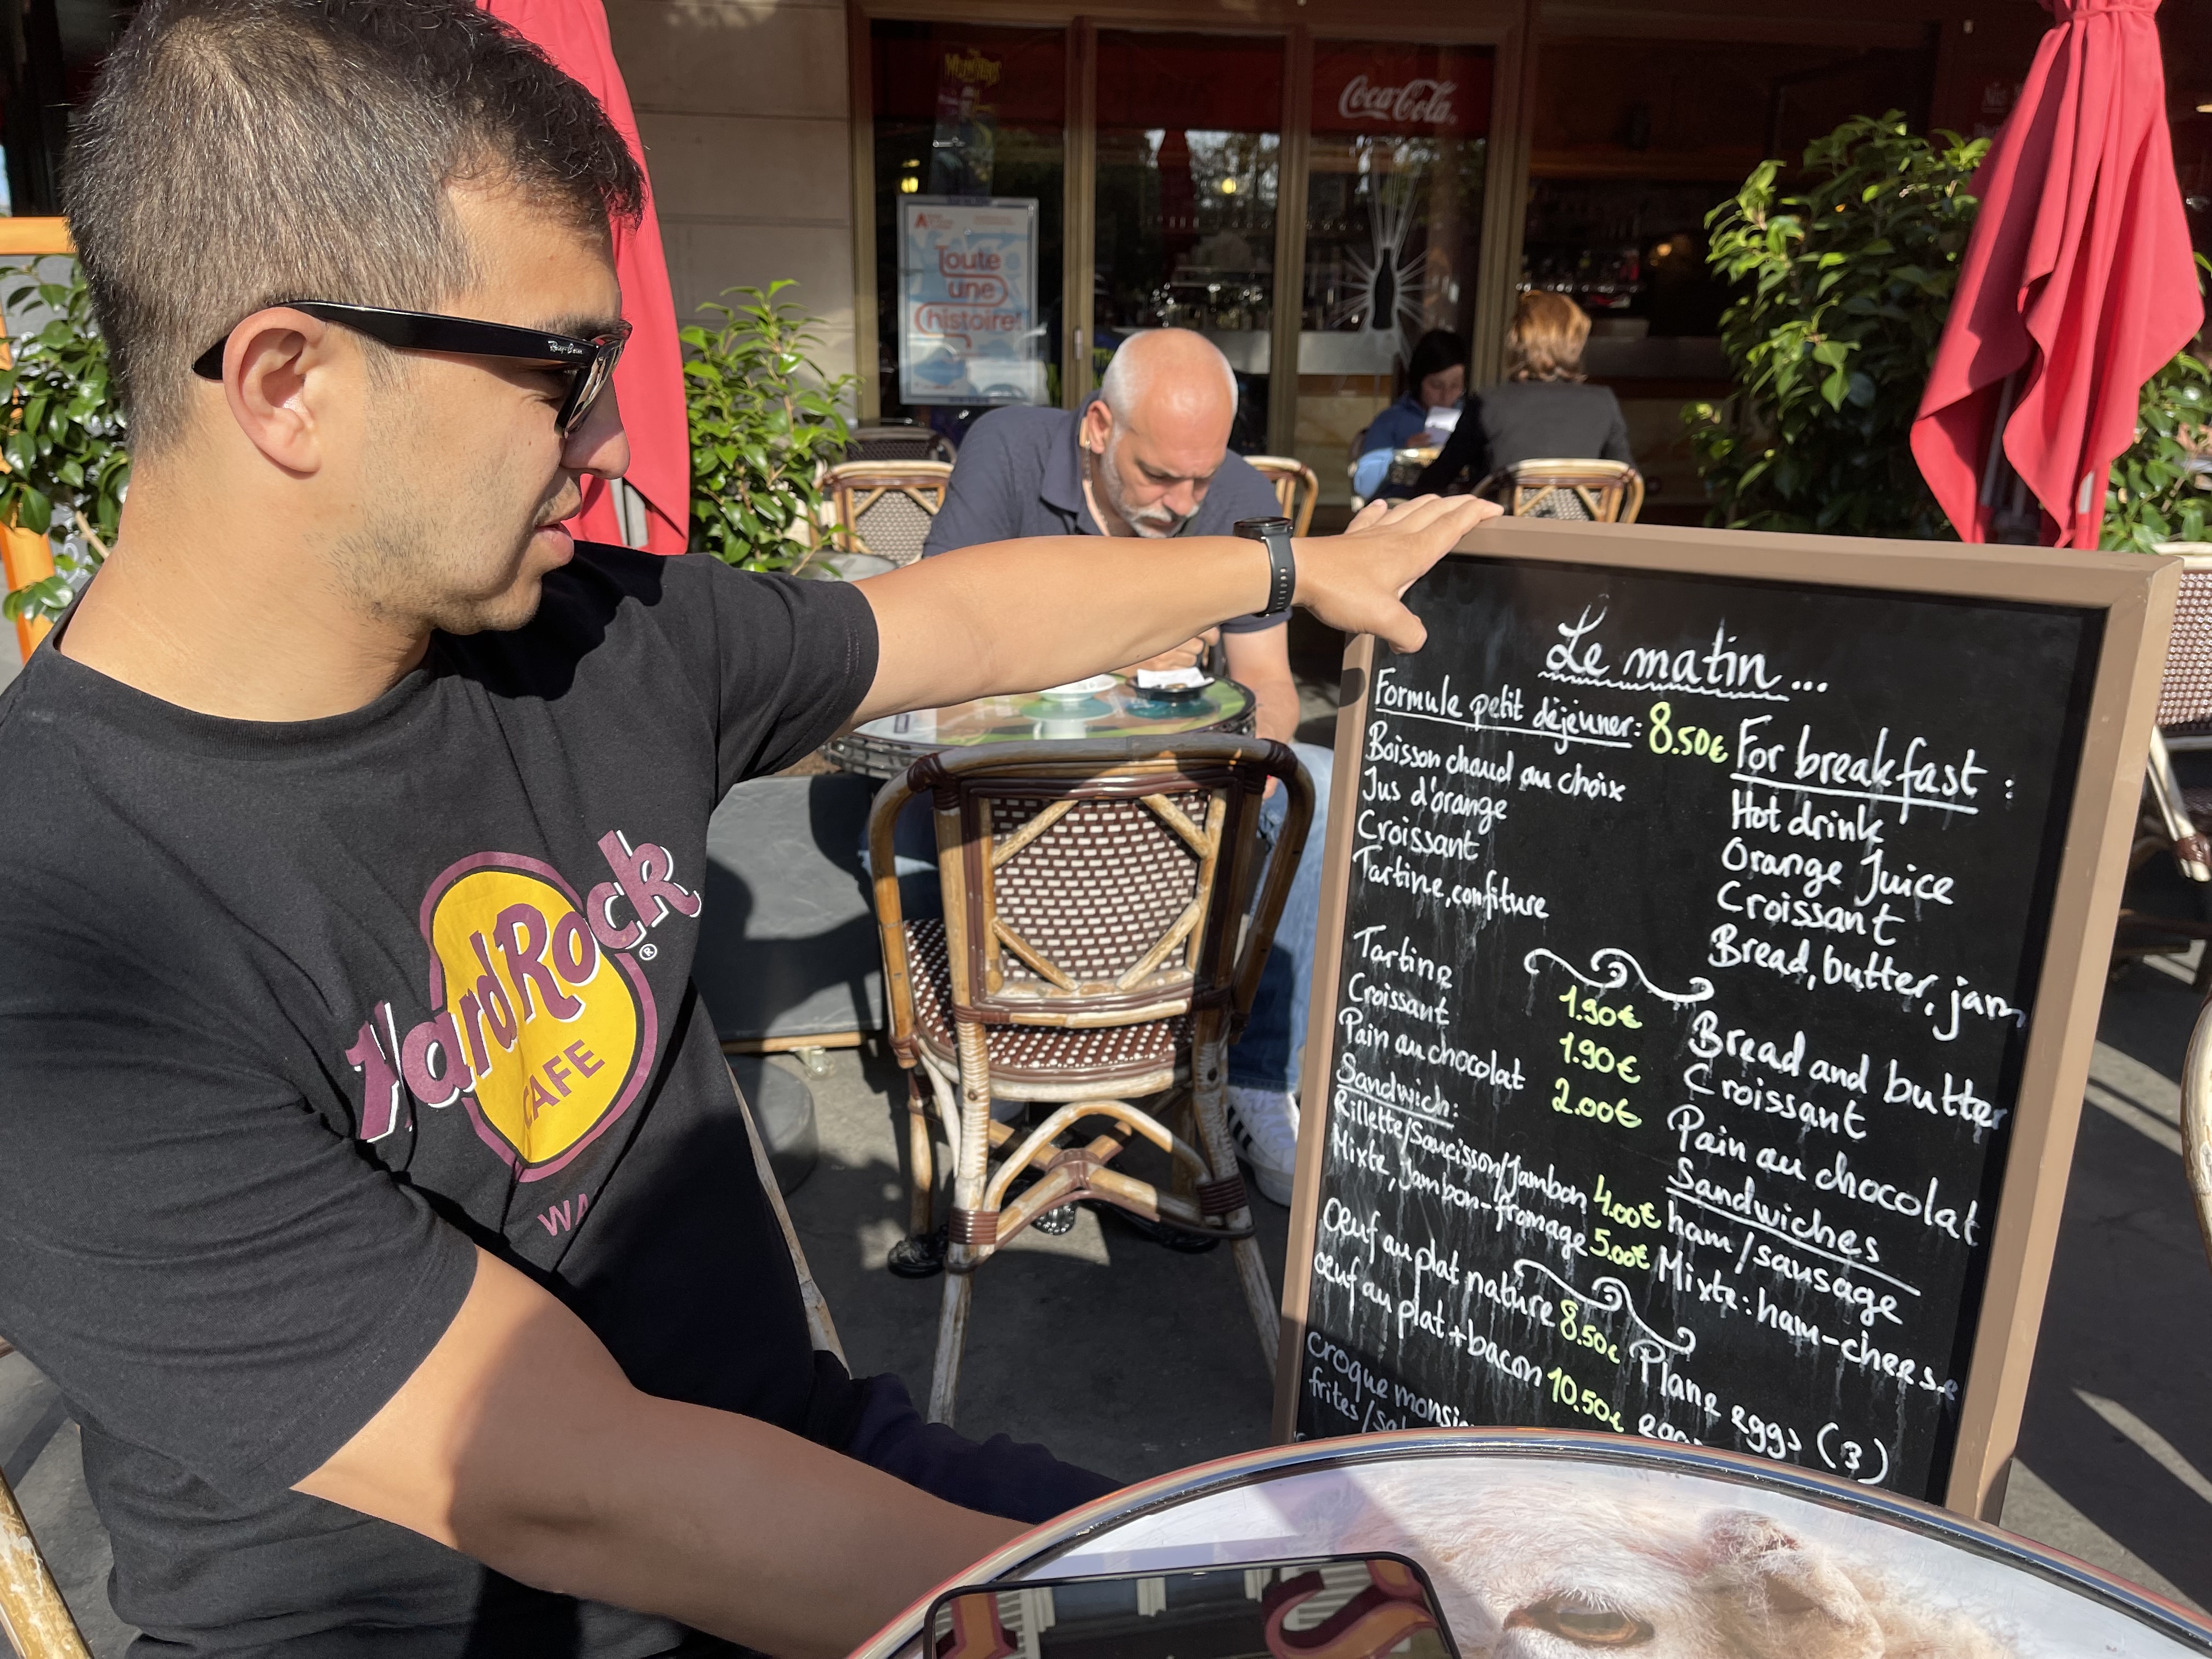 Coca-Cola
Toute
une
histoire!
Ray-Ban
Hard Rock
CAFE
WA
Le matin...
Formule petit déjeuner: 8.50€
Boisson chaud au choix
Jus d'orange
Croissant
Tartine, confiture
For breakfast:
Hot drink
Orange Juice
Croissant
Bread, butter, jam
Tartine 1.90€ Bread and butter
Croissant 1.90€ Croissant
Pain au chocolat 2.00€ Pain au chocolat
Sandwich: Sandwiches
Rillette/Saucisson/Jambon 4.00€ ham/sausage
Mixte, Jambon-fromage 5.00€ Mixte: ham-cheese
Œuf au plat nature 8.50€ Plane eggs (3)
œuf au plat + bacon 10.50€ eggs
Croque monsie
frites/sal